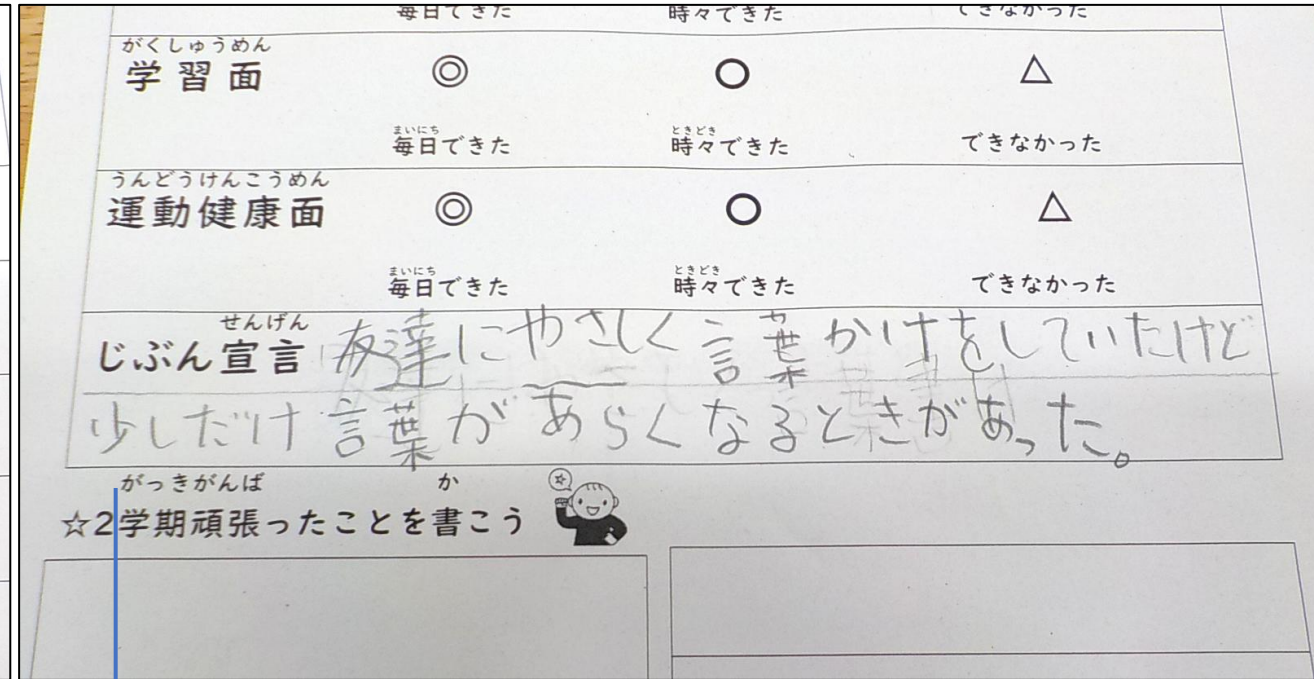 毎日できた 時々できた できなかった
がくしゅうめん
学習面 ◎ ○ △
まいにち ときどき
毎日できた 時々できた できなかった
うんどうけんこうめん
運動健康面 ◎ ○ △
まいにち ときどき
毎日できた 時々できた できなかった
せんげん
じぶん宣言 友達にやさしく言葉かけをしていたけど
少しだけ言葉があらくなるときがあった。
がっきがんば か
☆2学期頑張ったことを書こう